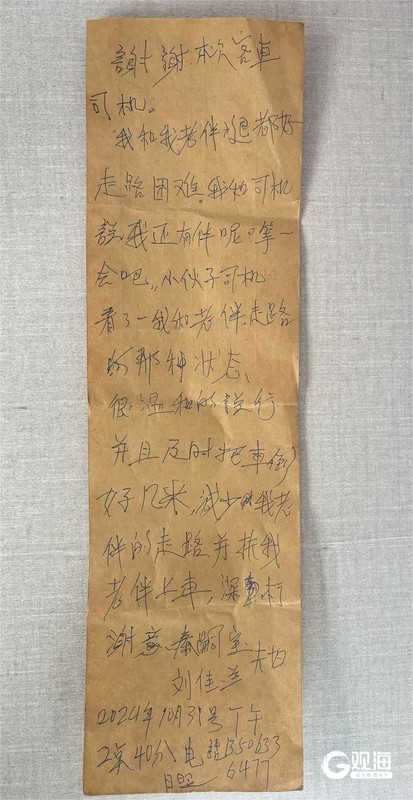 謝謝本次客車
司机。
我和我老伴腿都好
走路困难。我和司机
説我还有伴呢。等一
会吧,,小伙子司机
看了一我和老伴走路
的那种状态、
很温和的説行
并且及时把車倒
好几米,减少我老
伴的走路并扶我
老伴上車,深表
谢意 秦嗣宝
刘佳兰
2024年10月31号下午
2点40分 电話1350633
6477
G观海